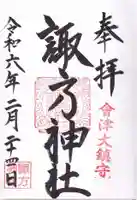 奉拝
會津大鎮守
諏方神社
令和六年二月二十四日